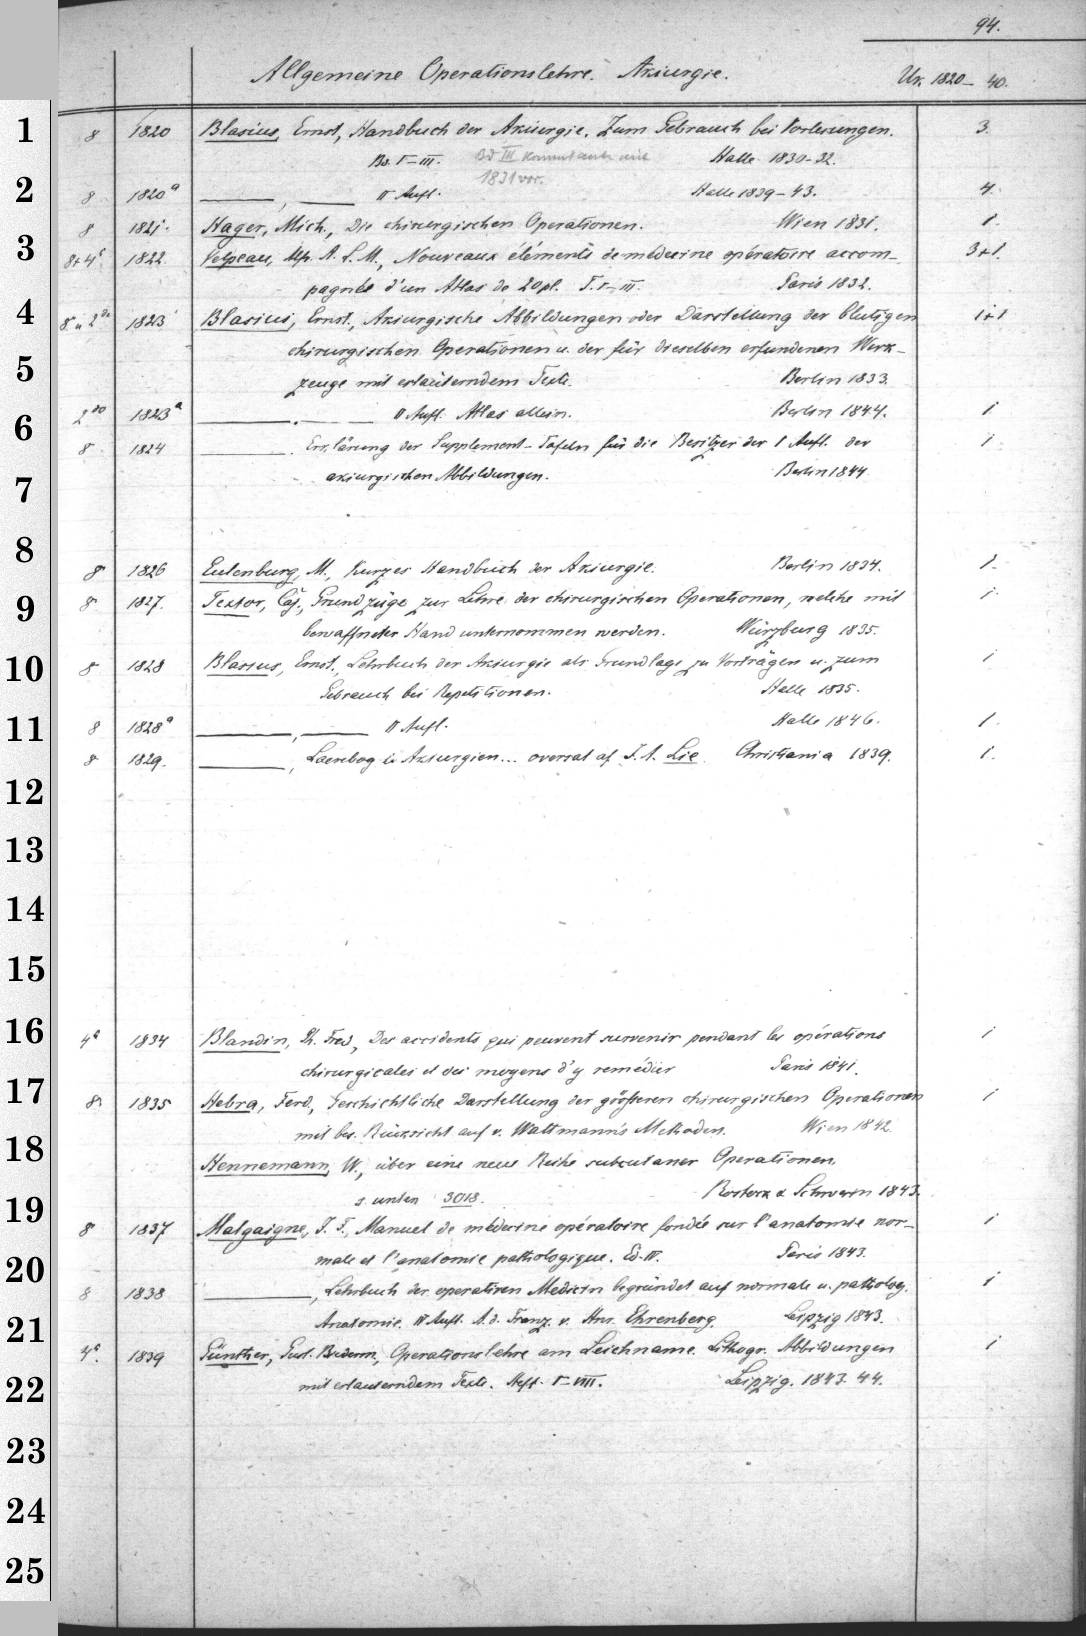 94.
Allgemeine Operationslehre. Akiurgie. Ur. 1820– 40.
1
8 1820 Blasius, Ernst, Handbuch der Akiurgie. Zum Gebrauch bei Vorlesungen. 3.
Bd. I–III. Bd III kommt auch mit Halle 1830-32.
1831 vor.
2
8 1820a ———, ——— II Aufl. Halle 1839–43. 4.
8 1821. Hager, Mich., Die chirurgischen Operationen. Wien 1831. 1.
3
8+4° 1822. Velpeau, Alf. A. L. M., Nouveaux éléments de médecine opératoire accom-  3+1.
pagnée d'un Atlas de 20 pl. T. I–III. Paris 1832.
4
8° u 2do 1823 Blasius, Ernst., Akiurgische Abbildungen oder Darstellung der blutigen 1+1
chirurgischen Operationen u. der für dieselben erfundenen Werk-
5
zeuge mit erläuterndem Texte. Berlin 1833.
2do 1823a ———. ——— II Aufl. Atlas allein. Berlin 1844. 1
6
8 1824 ———. Erklärung der Supplement-Tafeln für die Besitzer der I Aufl. der 1
akiurgischen Abbildungen. Berlin 1844
7
8
8 1826 Eulenburg, M., Kurzes Handbuch der Akiurgie. Berlin 1834. 1.
9
8 1827. Textor, Caj., Grundzüge zur Lehre der chirurgischen Operationen, welche mit 1
bewaffneter Hand unternommen werden. Würzburg 1835.
10
8 1828 Blasius, Ernst., Lehrbuch der Akiurgie als Grundlage zu Vorträgen u. zum 1
Gebrauch bei Repetitionen. Halle 1835.
11
8 1828a ———, ——— II Aufl. Halle 1846. 1.
8 1829. ———, Laerebog i Akiurgien... oversat af J. A. Lie. Christiania 1839. 1.
12
13
14
15
16
4° 1834 Blandin, Ph. Fred., Des accidents qui peuvent survenir pendant les opérations 1
chirurgicales et des moyens d'y remédier Paris 1841.
17
8. 1835 Hebra, Ferd., Geschichtliche Darstellung der größeren chirurgischen Operationen 1
mit bes. Rücksicht auf v. Wattmann's Methoden. Wien 1842.
18
Hennemann, W., über eine neue Reihe subcutaner Operationen.
19
s. unten 3018. Rostock & Schwerin 1843.
8 1837 Malgaigne, J. F., Manuel de médecine opératoire fondée sur l'anatomie nor- 1
male et l'anatomie pathologique. Ed. IV. Paris 1843.
20
8 1838 ———, Lehrbuch der operativen Medicin begründet auf normale u. patholog. 1
Anatomie. IV Aufl. A. d. Franz. v. Hnr. Ehrenberg. Leipzig 1843.
21
4°. 1839 Günther, Gust. Biederm., Operationslehre am Leichname. Lithogr. Abbildungen 1
mit erläuterndem Texte. Heft. I–VIII. Leipzig. 1843. 44.
22
23
24
25